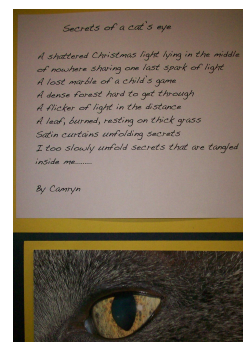 Secrets of a cat's eye
A shattered Christmas light lying in the middle
of nowhere sharing one last spark of light
A lost marble of a child's game
A dense forest hard to get through
A flicker of light in the distance
A leaf, burned, resting on thick grass
Satin curtains unfolding secrets
I too slowly unfold secrets that are tangled
inside me.......
By Camryn